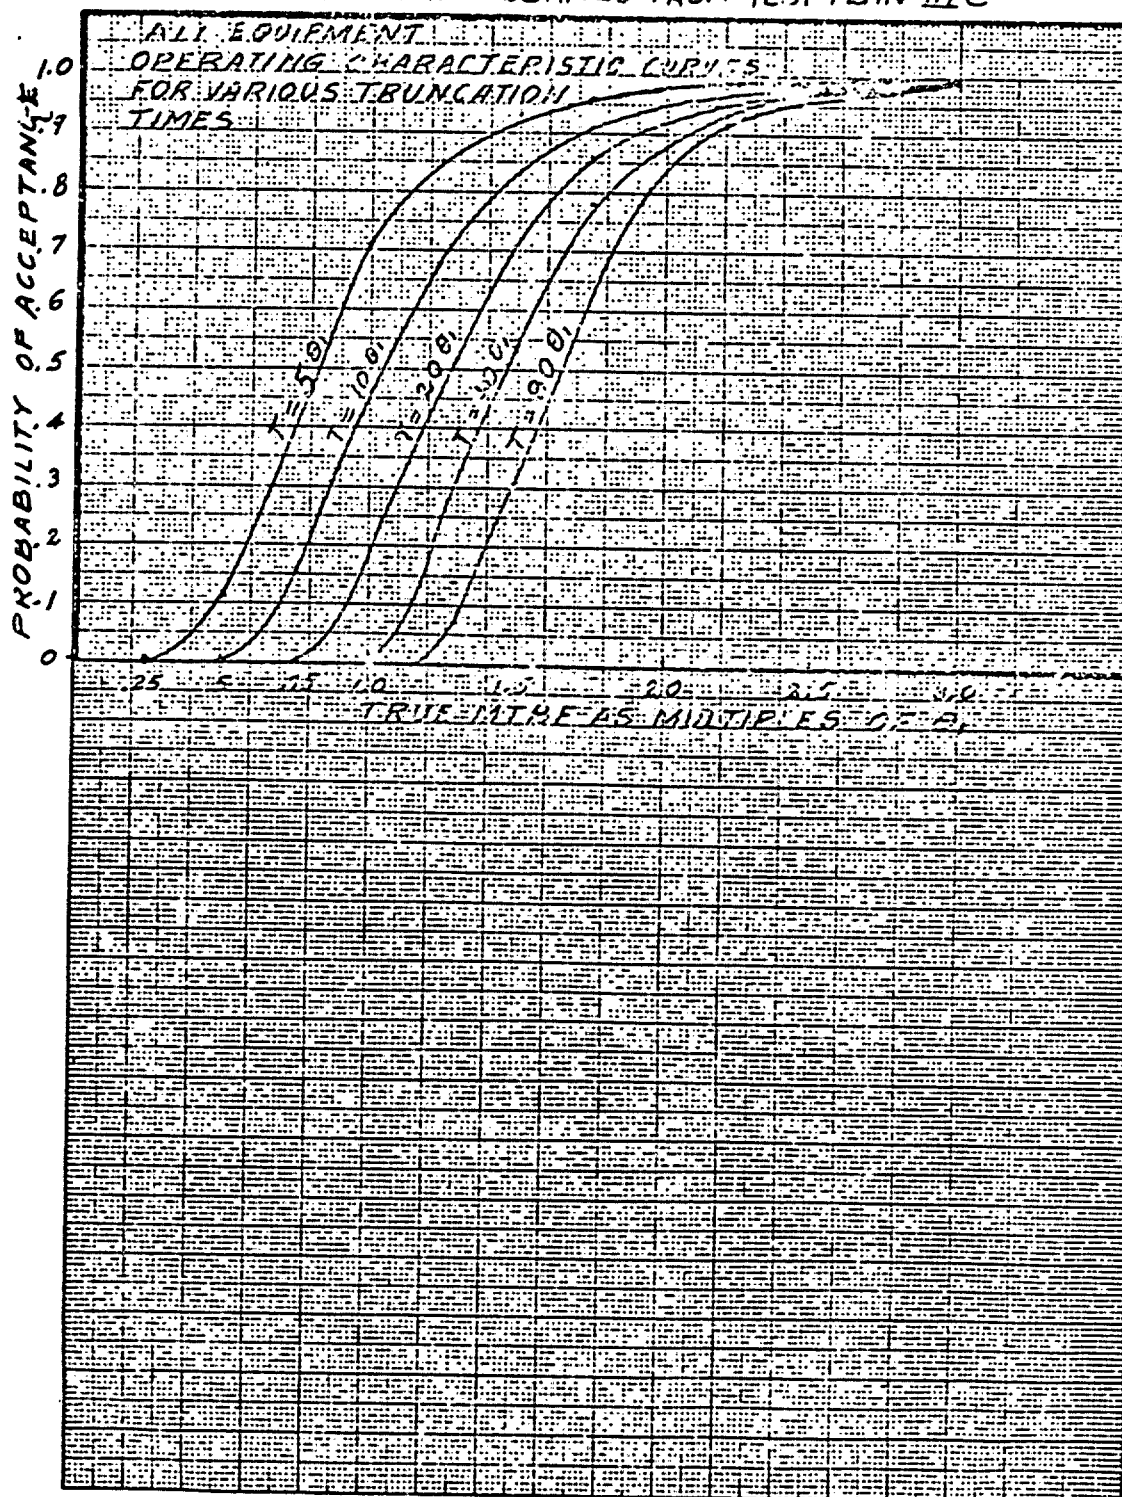 FROM TEST PLAN III C
ALL EQUIPMENT
OPERATING CHARACTERISTIC CURVES
FOR VARIOUS TRUNCATION
TIMES
PROBABILITY OF ACCEPTANCE
1.0
.9
.8
.7
.6
.5
.4
.3
.2
.1
0
T = 5θ₁
T = 10θ₁
T = 20θ₁
T = 30θ₁
T = 90θ₁
.25 .5 .75 1.0 1.5 2.0 2.5 3.0
TRUE MTBF AS MULTIPLES OF θ₁